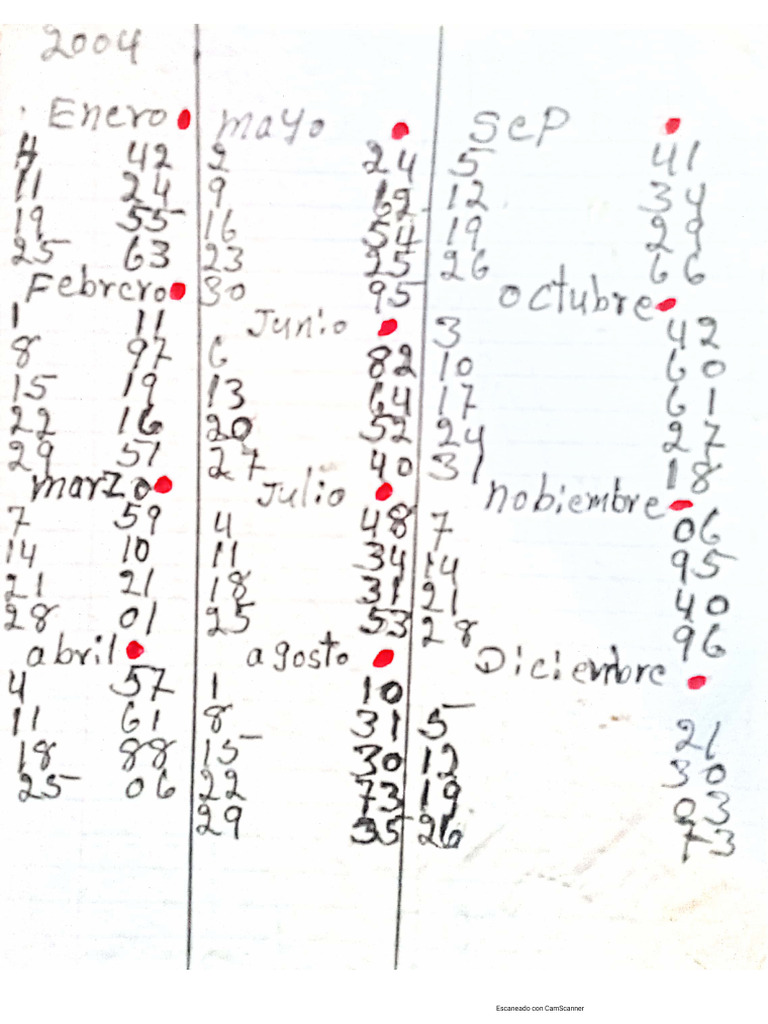 2004
Enero
4 42
11 24
19 55
25 63
Febrero
1 11
8 97
15 19
22 16
29 51
marzo
7 59
14 10
21 21
28 01
abril
4 57
11 61
18 88
25 06
mayo
2 24
9 62
16 54
23 25
30 95
Junio
6 82
13 64
20 52
27 40
Julio
4 48
11 34
18 31
25 53
agosto
1 10
8 31
15 30
22 73
29 35
SeP
5 41
12 34
19 29
26 66
octubre
3 42
10 60
17 61
24 27
31 18
nobiembre
7 06
14 95
21 40
28 96
Diciembre
5 21
12 30
19 03
26 73
Escaneado con CamScanner